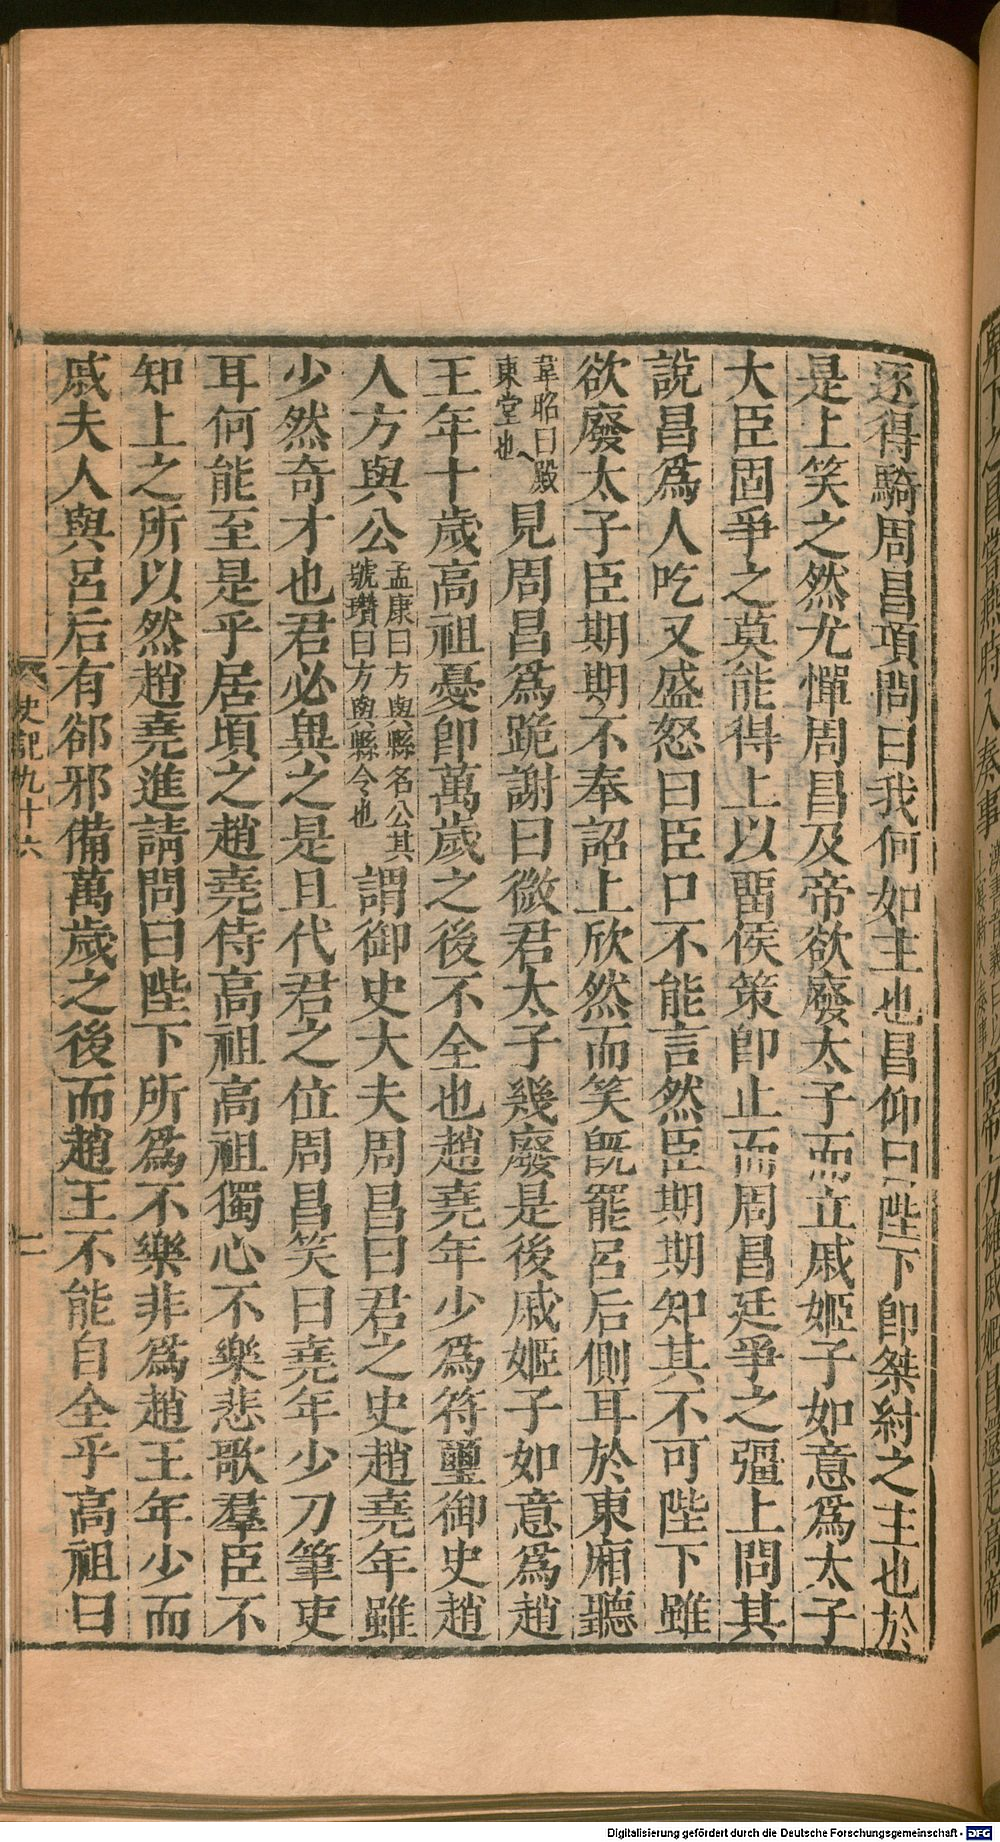 逐得騎周昌項問曰我何如主也昌仰曰陛下卽桀紂之主也於
是上笑之然尤憚周昌及帝欲廢太子而立戚姬子如意爲太子
大臣固爭之莫能得上以畱侯策卽止而周昌廷爭之彊上問其
說昌爲人吃又盛怒曰臣口不能言然臣期期知其不可陛下雖
欲廢太子臣期期不奉詔上欣然而笑旣罷呂后側耳於東廂聽
韋昭曰殿東堂也見周昌爲跪謝曰微君太子幾廢是後戚姬子如意爲趙
王年十歲高祖憂卽萬歲之後不全也趙堯年少爲符璽御史趙
人方與公孟康曰方與縣名公其號瓚曰方與縣令也謂御史大夫周昌曰君之史趙堯年雖
少然奇才也君必異之是且代君之位周昌笑曰堯年少刀筆吏
耳何能至是乎居頃之趙堯侍高祖高祖獨心不樂悲歌羣臣不
知上之所以然趙堯進請問曰陛下所爲不樂非爲趙王年少而
戚夫人與呂后有郤邪備萬歲之後而趙王不能自全乎高祖曰
史記九十六
二
Digitalisierung gefördert durch die Deutsche Forschungsgemeinschaft - DFG